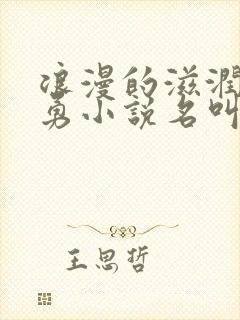 浪漫的滋润
勇小说名叫
王思哲